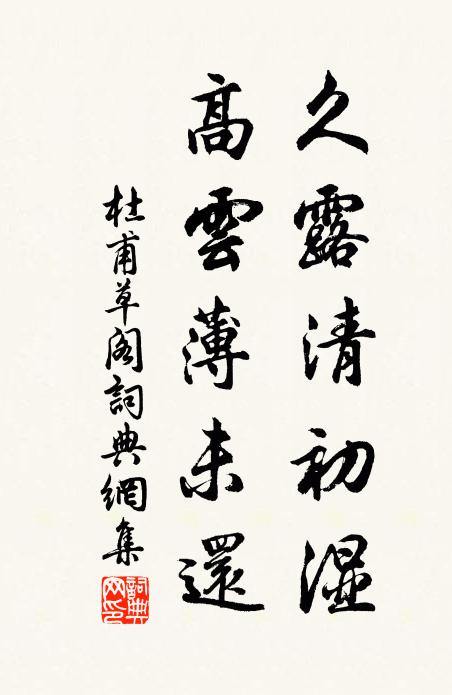 久露清初湿
高雲薄未還
杜甫草阁詞典網集
詞典网印